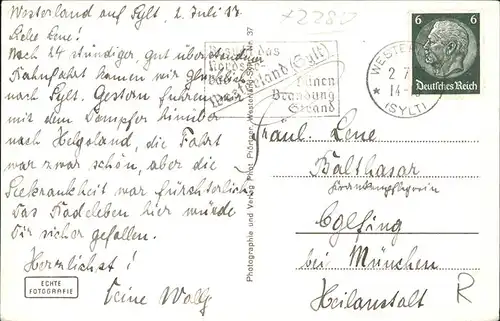 Westerland auf Sylt, 2. Juli 37
Liebe Lene!
Nach 24 stündiger, gut überstandener
Bahnfahrt kamen wir glücklich
nach Sylt. Gestern fuhren
wir mit dem Dampfer hinüber
nach Helgoland, die Fahrt
war zwar schön, aber die
Seekrankheit war fürchterlich.
Das Badeleben hier würde
Dir sicher gefallen.
Herzlichst!
Deine Wally
ECHTE
FOTOGRAFIE
Photographie und Verlag Phot. Pförtner, Westerland
Nr. 37
x2280
Besucht das
Nordsee
Westerland (Sylt)
Dünen
Brandung
Strand
WESTERLAND
2.7
14-
* (SYLT)
6 6
Deutsches Reich
Fräul. Lene
Balthasar
Krankenpflegerin
Eglfing
bei München
Heilanstalt
R